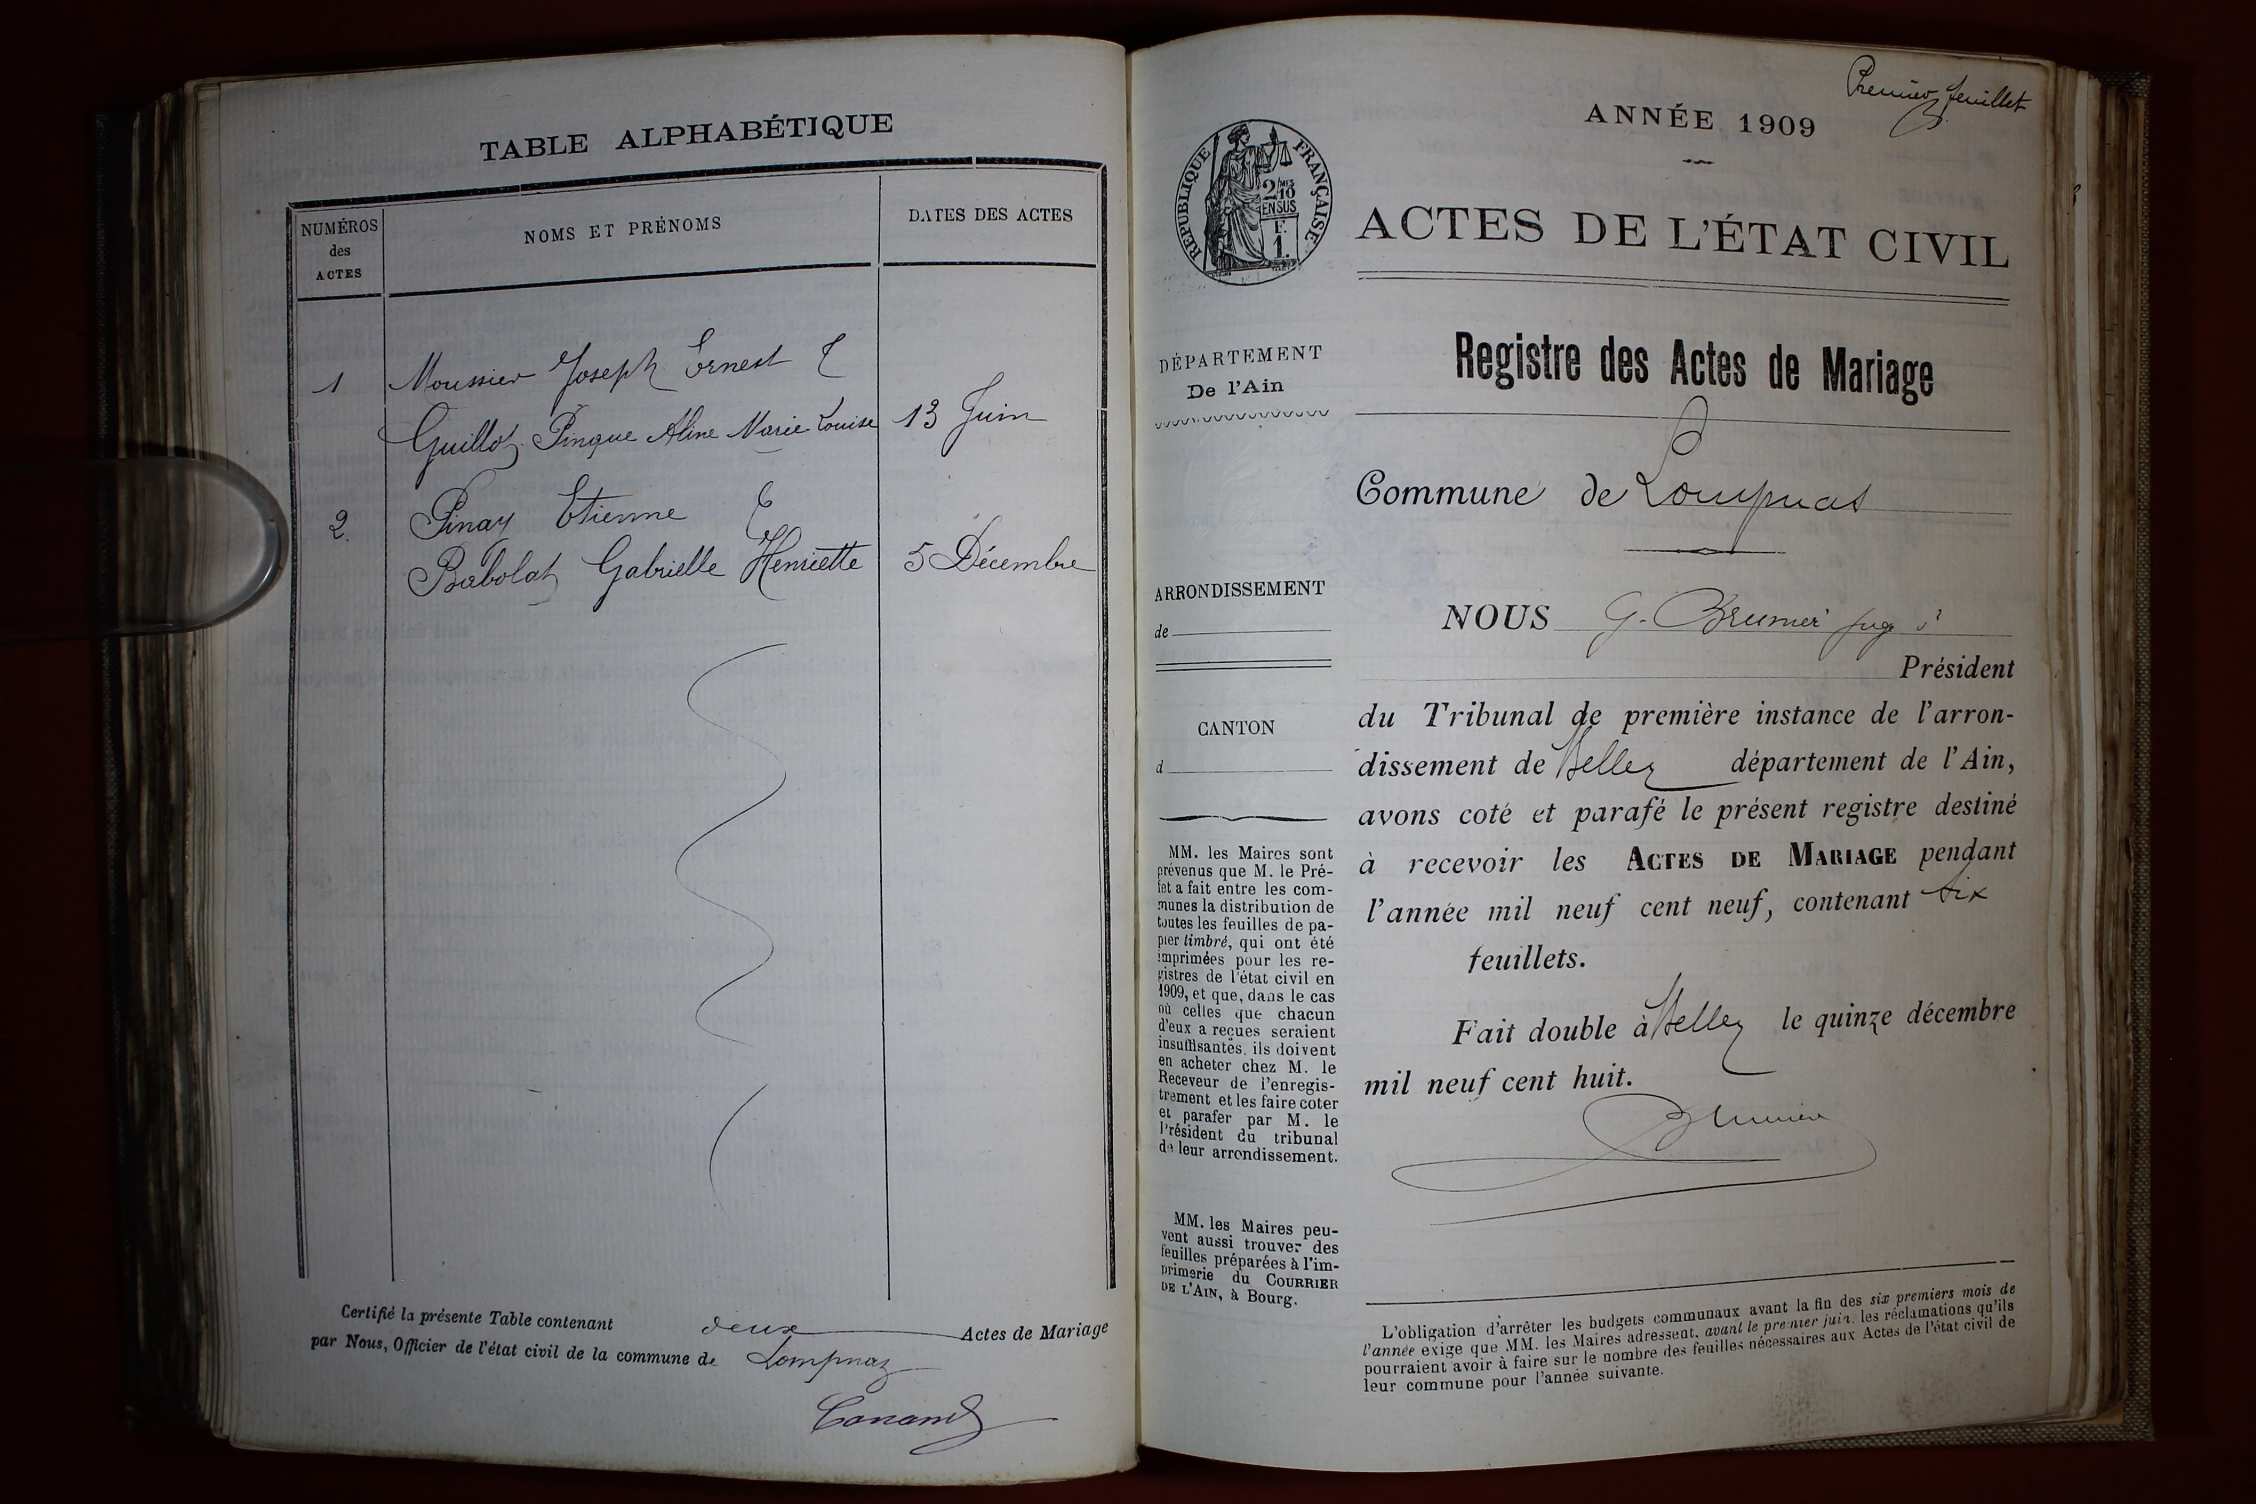 TABLE ALPHABÉTIQUE
NUMÉROS
des
ACTES
NOMS ET PRÉNOMS
DATES DES ACTES
1 Moussier Joseph Ernest &
Guillot Pingue Aline Marie Louise 13 Juin
2. Pinay Etienne &
Babolat Gabrielle Henriette 5 Décembre
Certifié la présente Table contenant deux Actes de Mariage
par Nous, Officier de l'état civil de la commune de Lompnaz
Premier feuillet
ANNÉE 1909
RÉPUBLIQUE FRANÇAISE
2/10mes
EN SUS
1F.
ACTES DE L'ÉTAT CIVIL
Registre des Actes de Mariage
DÉPARTEMENT
De l'Ain
Commune de Lompnas
ARRONDISSEMENT
de
CANTON
d
MM. les Maires sont
prévenus que M. le Pré-
fet a fait entre les com-
munes la distribution de
toutes les feuilles de pa-
pier timbré, qui ont été
imprimées pour les re-
gistres de l'état civil en
1909, et que, dans le cas
où celles que chacun
d'eux a reçues seraient
insuffisantes, ils doivent
en acheter chez M. le
Receveur de l'enregis-
trement et les faire coter
et parafer par M. le
Président du tribunal
de leur arrondissement.
MM. les Maires peu-
vent aussi trouver des
feuilles préparées à l'im-
primerie du COURRIER
DE L'AIN, à Bourg.
NOUS G. Brunier
Président
du Tribunal de première instance de l'arron-
dissement de Belley département de l'Ain,
avons coté et parafé le présent registre destiné
à recevoir les ACTES DE MARIAGE pendant
l'année mil neuf cent neuf, contenant six
feuillets.
Fait double à Belley le quinze décembre
mil neuf cent huit.
L'obligation d'arrêter les budgets communaux avant la fin des six premiers mois de
l'année exige que MM. les Maires adressent, avant le premier juin, les réclamations qu'ils
pourraient avoir à faire sur le nombre des feuilles nécessaires aux Actes de l'état civil de
leur commune pour l'année suivante.